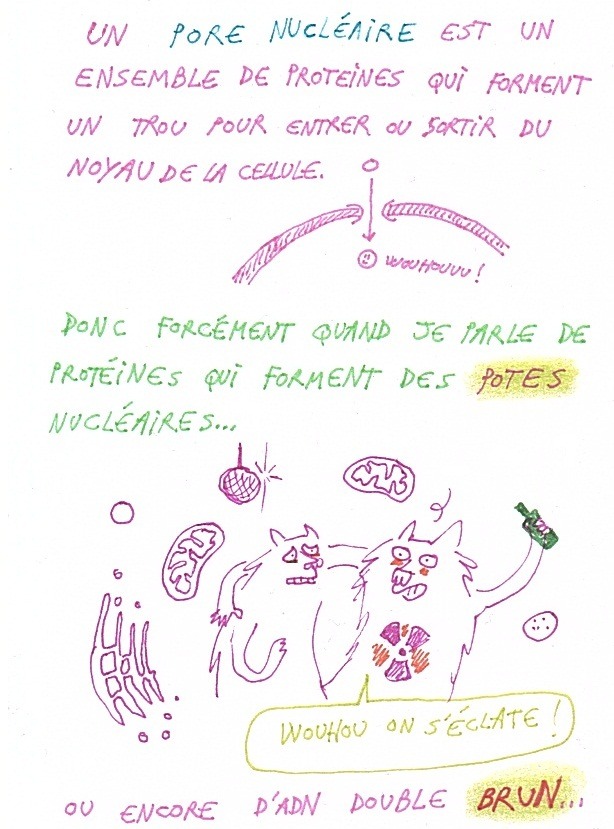 UN PORE NUCLÉAIRE EST UN
ENSEMBLE DE PROTEINES QUI FORMENT
UN TROU POUR ENTRER OU SORTIR DU
NOYAU DE LA CELLULE.
WOUHOUUU !
DONC FORCÉMENT QUAND JE PARLE DE
PROTÉINES QUI FORMENT DES POTES
NUCLÉAIRES...
WOUHOU ON S'ÉCLATE !
OU ENCORE D'ADN DOUBLE BRUN...